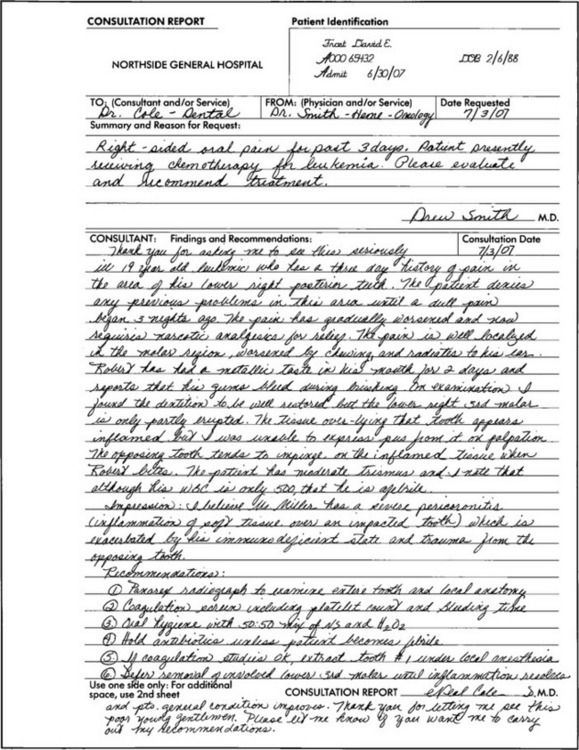 CONSULTATION REPORT
Patient Identification
Trost David E.
A000 65432
DOB 2/6/88
Admit 6/30/07
NORTHSIDE GENERAL HOSPITAL
TO: (Consultant and/or Service)
Dr. Cole - Dental
FROM: (Physician and/or Service)
Dr. Smith - Heme - Oncology
Date Requested
7/3/07
Summary and Reason for Request:
Right-sided oral pain for past 3 days. Patient presently
receiving chemotherapy for leukemia. Please evaluate
and recommend treatment.
Drew Smith M.D.
CONSULTANT: Findings and Recommendations:
Consultation Date
7/3/07
Thank you for asking me to see this seriously
ill 19 year old leukemic who has a three day history of pain in
the area of his lower right posterior teeth. The patient denies
any previous problems in this area until a dull pain
began 3 nights ago. The pain has gradually worsened and now
requires narcotic analgesics for relief. The pain is well localized
in the molar region, worsened by chewing, and radiates to his ear.
Robert has had a metallic taste in his mouth for 2 days and
reports that his gums bleed during brushing. On examination I
found the dentition to be well restored but the lower right 3rd molar
is only partly erupted. The tissue over-lying that tooth appears
inflamed but I was unable to express pus from it on palpation.
The opposing tooth tends to impinge on the inflamed tissue when
Robert bites. The patient has moderate trismus and I note that
although his WBC is only 500, that he is afebrile.
Impression: I believe Mr Miller has a severe pericoronitis
(inflammation of soft tissue over an impacted tooth) which is
exacerbated by his immunodeficient state and trauma from the
opposing tooth.
Recommendations:
① Panorex radiograph to examine entire tooth and local anatomy
② Coagulation screen including platelet count and bleeding time
③ Oral hygiene with 50:50 mix of NS and H2O2
④ Hold antibiotics unless patient becomes febrile
⑤ If coagulation studies OK, extract tooth #1 under local anesthesia
⑥ Defer removal of involved lower 3rd molar until inflammation resolves
Use one side only: For additional
space, use 2nd sheet
CONSULTATION REPORT
Neal Cole D.M.D.
and pts. general condition improves. Thank you for letting me see this
poor young gentlemen. Please let me know if you want me to carry
out my recommendations.